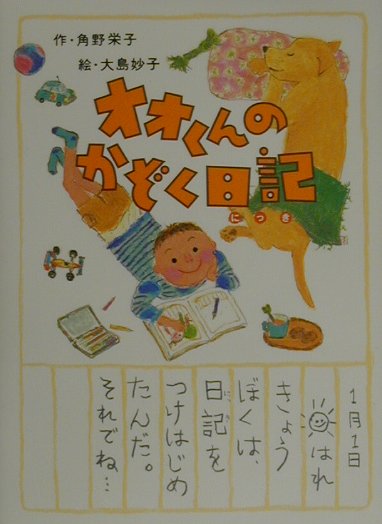 作・角野栄子
絵・大島妙子
オオくんの
かぞく日記
にっき
1月1日
はれ
きょう
ぼくは、
日記を
にっき
つけはじめ
たんだ。
それでね…